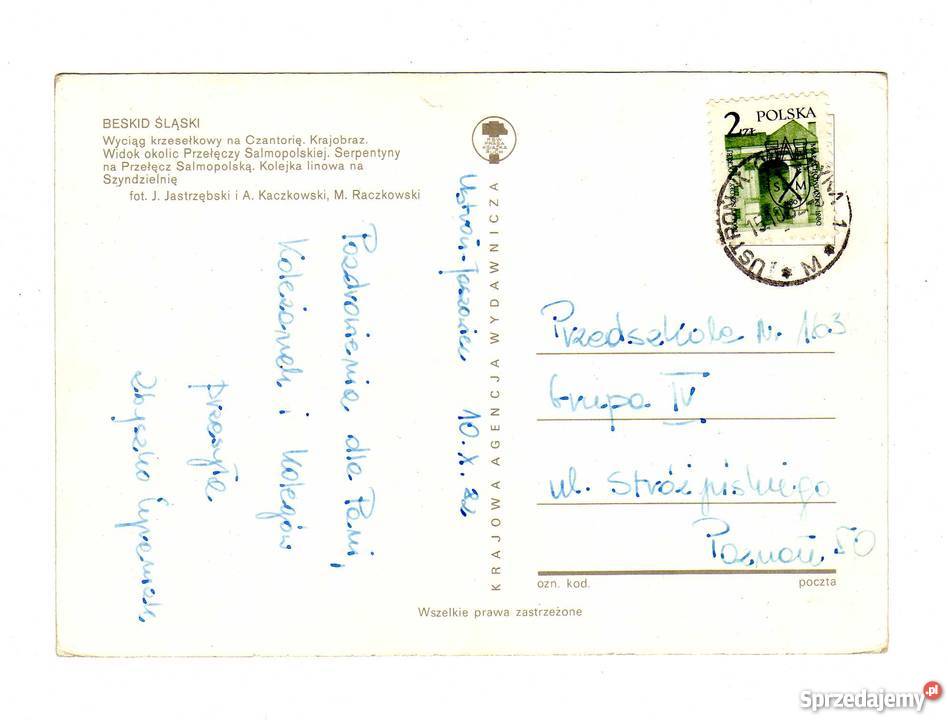 BESKID ŚLĄSKI
Wyciąg krzesełkowy na Czantorię. Krajobraz.
Widok okolic Przełęczy Salmopolskiej. Serpentyny
na Przełęcz Salmopolską. Kolejka linowa na
Szyndzielnię
fot. J. Jastrzębski i A. Kaczkowski, M. Raczkowski
Ustroń-Jaszowiec 10.X.82
Pozdrowienia dla Pani,
Koleżanek i Kolegów
przesyła
Zbyszko
KRAJOWA AGENCJA WYDAWNICZA
2 ZŁ POLSKA
S M
USTROŃ
1
Przedszkole Nr 163
Grupa IV
ul. Stróżyńskiego
Poznań 50
ozn. kod. poczta
Wszelkie prawa zastrzeżone
Sprzedajemy.pl